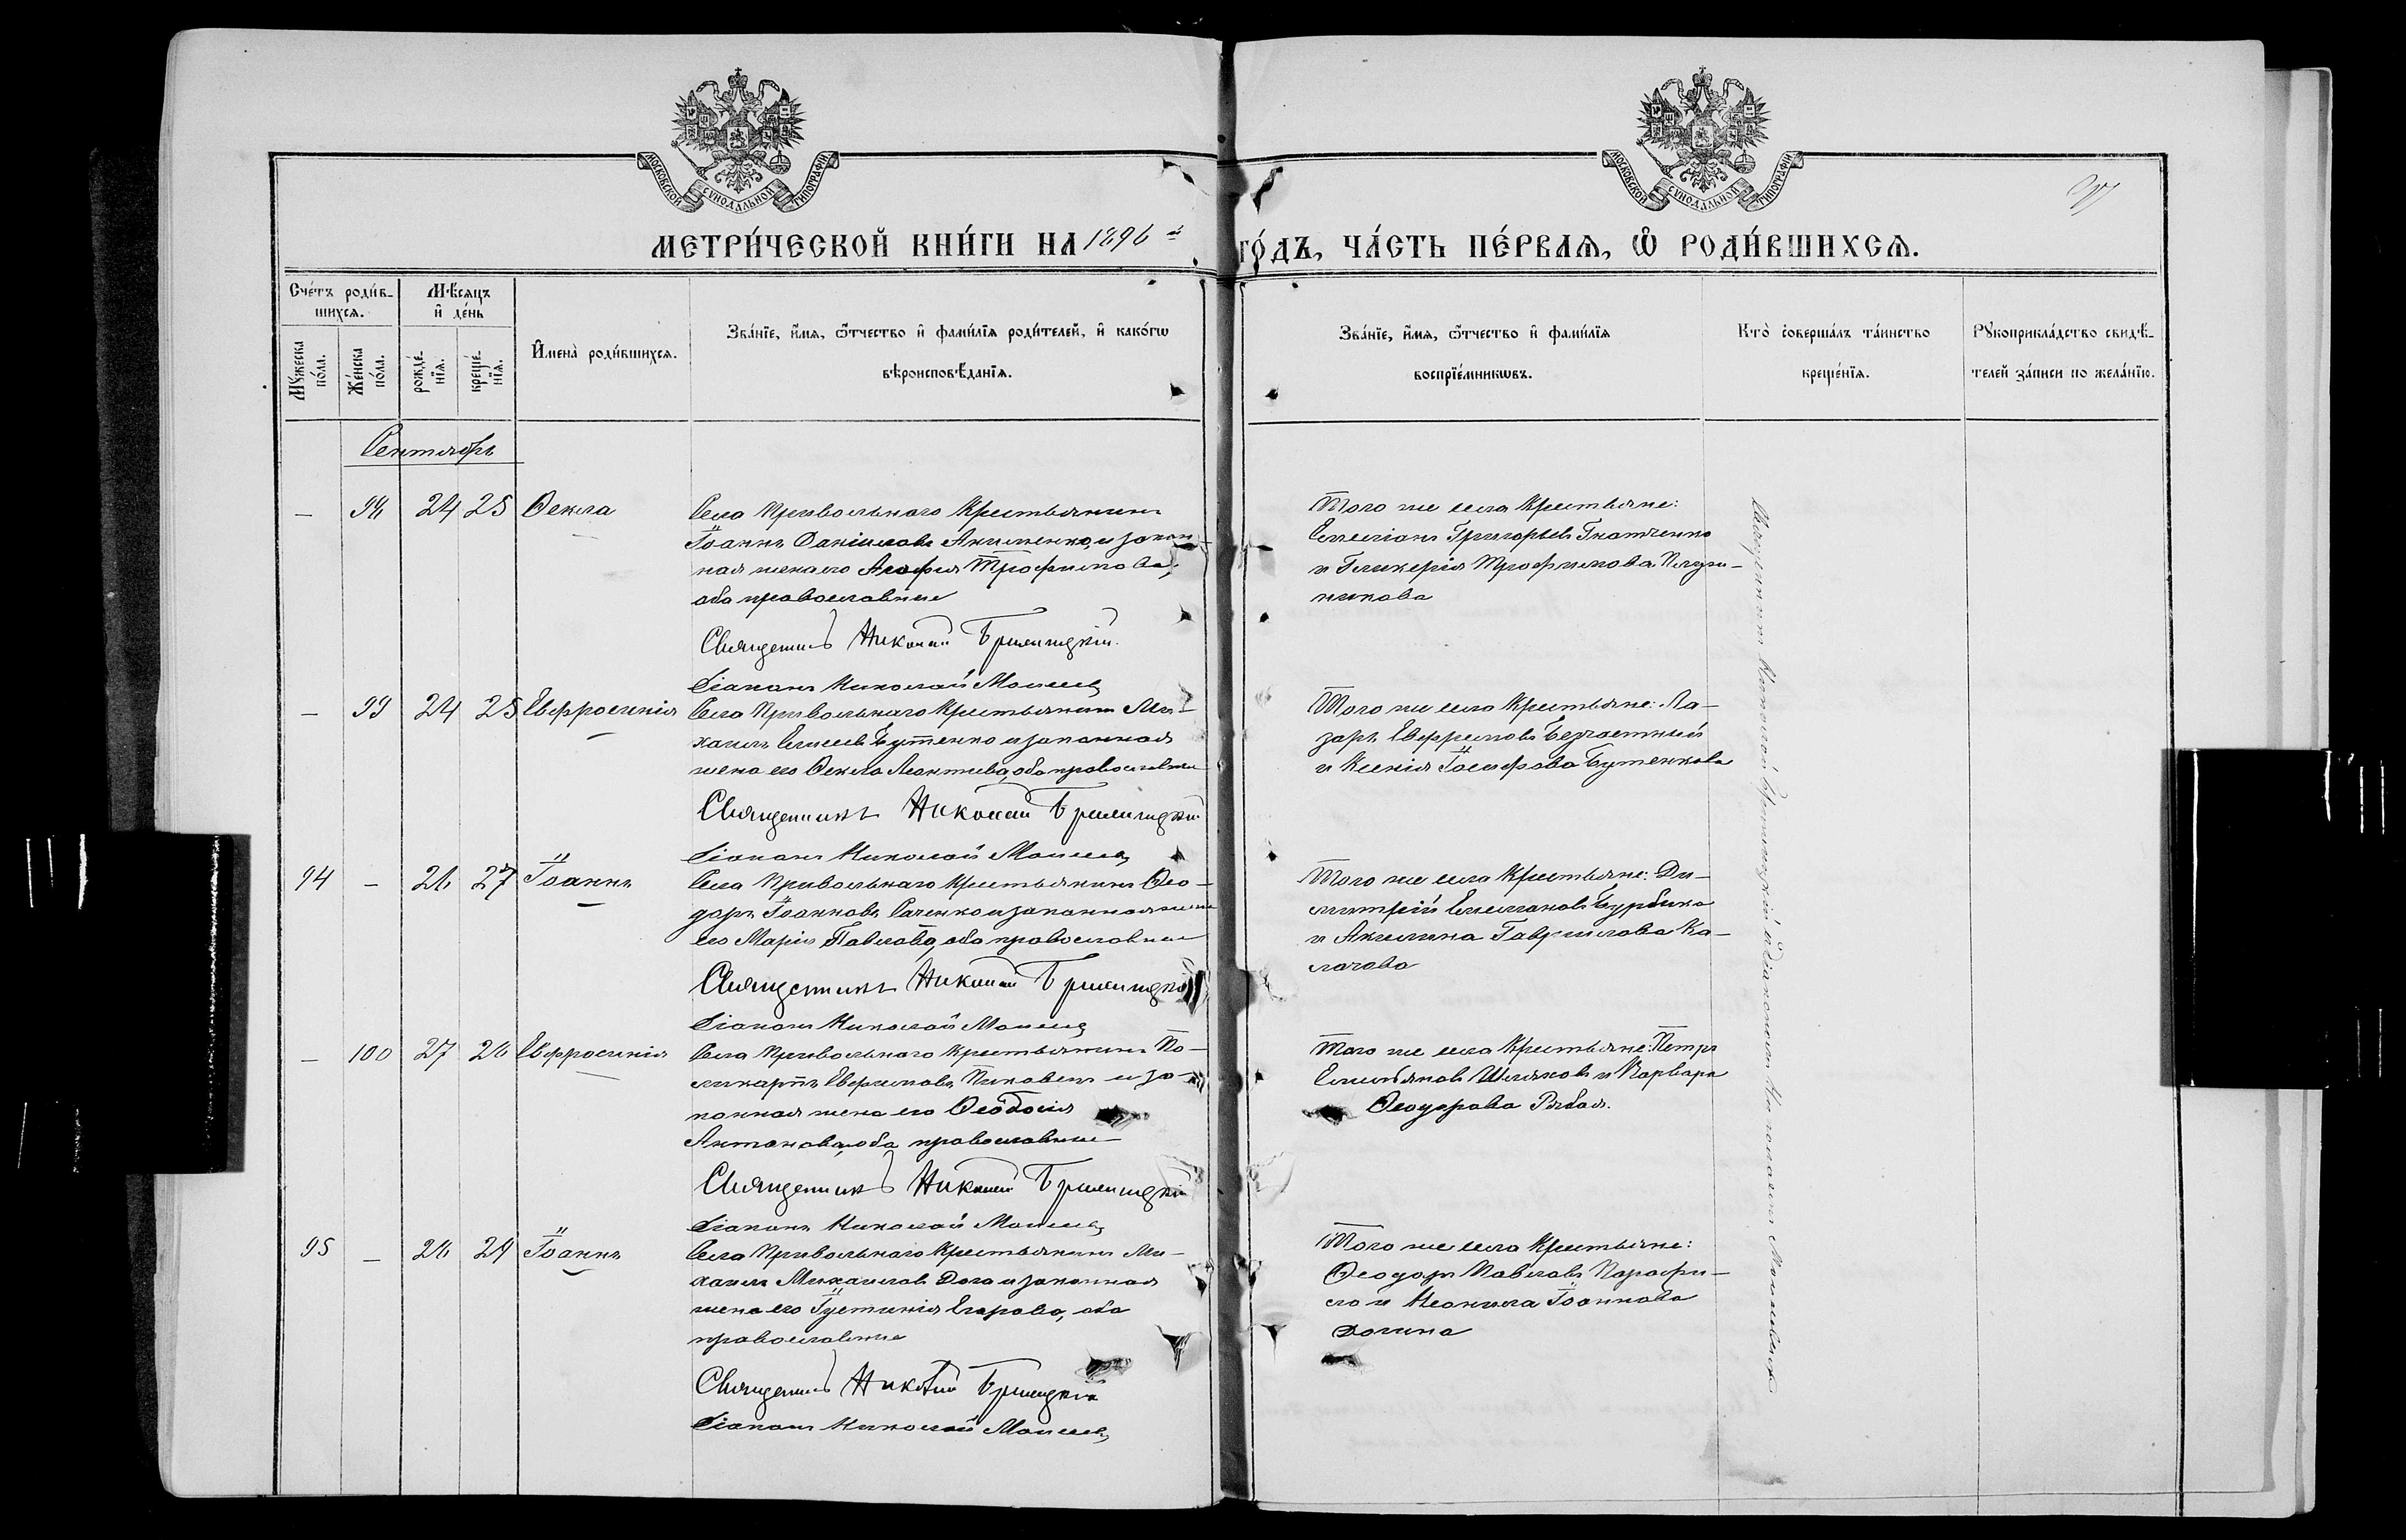 МОСКОВСКОЙ СУНОДАЛЬНОЙ ТИПОГРАФІИ
МОСКОВСКОЙ СУНОДАЛЬНОЙ ТИПОГРАФІИ
МЕТРИ́ЧЕСКОЙ КНИ́ГИ НА 1896 й го́дъ, ЧА́СТЬ ПЕ́РВАЯ, Ѡ҆ РОДИ́ВШИХСЯ.
Сче́тъ роди́в-
шихся.
Мꙋ́жеска по́ла.
Же́нска по́ла.
Мѣ́сяцъ и҆ де́нь
рожде́-
нїя.
креще́-
нїя.
И҆мена̀ роди́вшихся.
Зва́нїе, и҆́мя, ѻ҆́тчество и҆ фами́лїя роди́телей, и҆ како́гѡ
вѣроисповѣ́данїя.
Зва́нїе, и҆́мя, ѻ҆́тчество и҆ фами́лїя
воспрїе́мникѡвъ.
Кто̀ соверша́лъ та́инство
креще́нїя.
Рꙋкоприкла́дство свидѣ́-
телей за́писи по жела́нїю.
Сентябрь
— 98 24 25 Ѳекла
Села Привольнаго Крестьянинъ
Іоаннъ Даніиловъ Акименко, и закон-
ная жена его Агафія Трофимова,
оба православные
Священникъ Николай
Діаконъ Николай Моисеевъ
Того же села Крестьяне:
Емеліанъ Григорьевъ Гнатченко
и Гликерія Трофимова Плуж-
никова
— 99 24 25 Евфросинія
Села Привольнаго Крестьянинъ Ми-
хаилъ Елисеевъ Бутенко и законная
жена его Ѳекла Леонтьева, оба православные
Священникъ Николай
Діаконъ Николай Моисеевъ
Того же села Крестьяне: Ла-
зарь Евфремовъ Безчастный
и Ксенія Іосифова Бутенкова
94 — 26 27 Іоаннъ
Села Привольнаго Крестьянинъ Ѳео-
доръ Іоанновъ Саченко и законная жена
его Марія Павлова, оба православные
Священникъ Николай
Діаконъ Николай Моисеевъ
Того же села Крестьяне: Ди-
митрій Емелиановъ Бурбыка
и Акилина Гавриилова Ка-
лачова
— 100 27 28 Евфросинія
Села Привольнаго Крестьянинъ По-
ликарпъ Евфимовъ Пиковецъ и за-
конная жена его Ѳеодосія
Антонова, оба православные
Священникъ Николай
Діаконъ Николай Моисеевъ
Того же села Крестьяне: Петръ
Емельяновъ Шляховъ и Варвара
Ѳеодорова Рябая.
95 — 28 29 Іоаннъ
Села Привольнаго Крестьянинъ Ми-
хаилъ Михаиловъ Дога и законная
жена его Іустинія Егорова, оба
православные
Священникъ Николай
Діаконъ Николай Моисеевъ
Того же села Крестьяне:
Ѳеодоръ Павловъ Парафи-
ло и Неонила Іоаннова
Догина
Священникъ Николай и Діаконъ Николай Моисеевъ